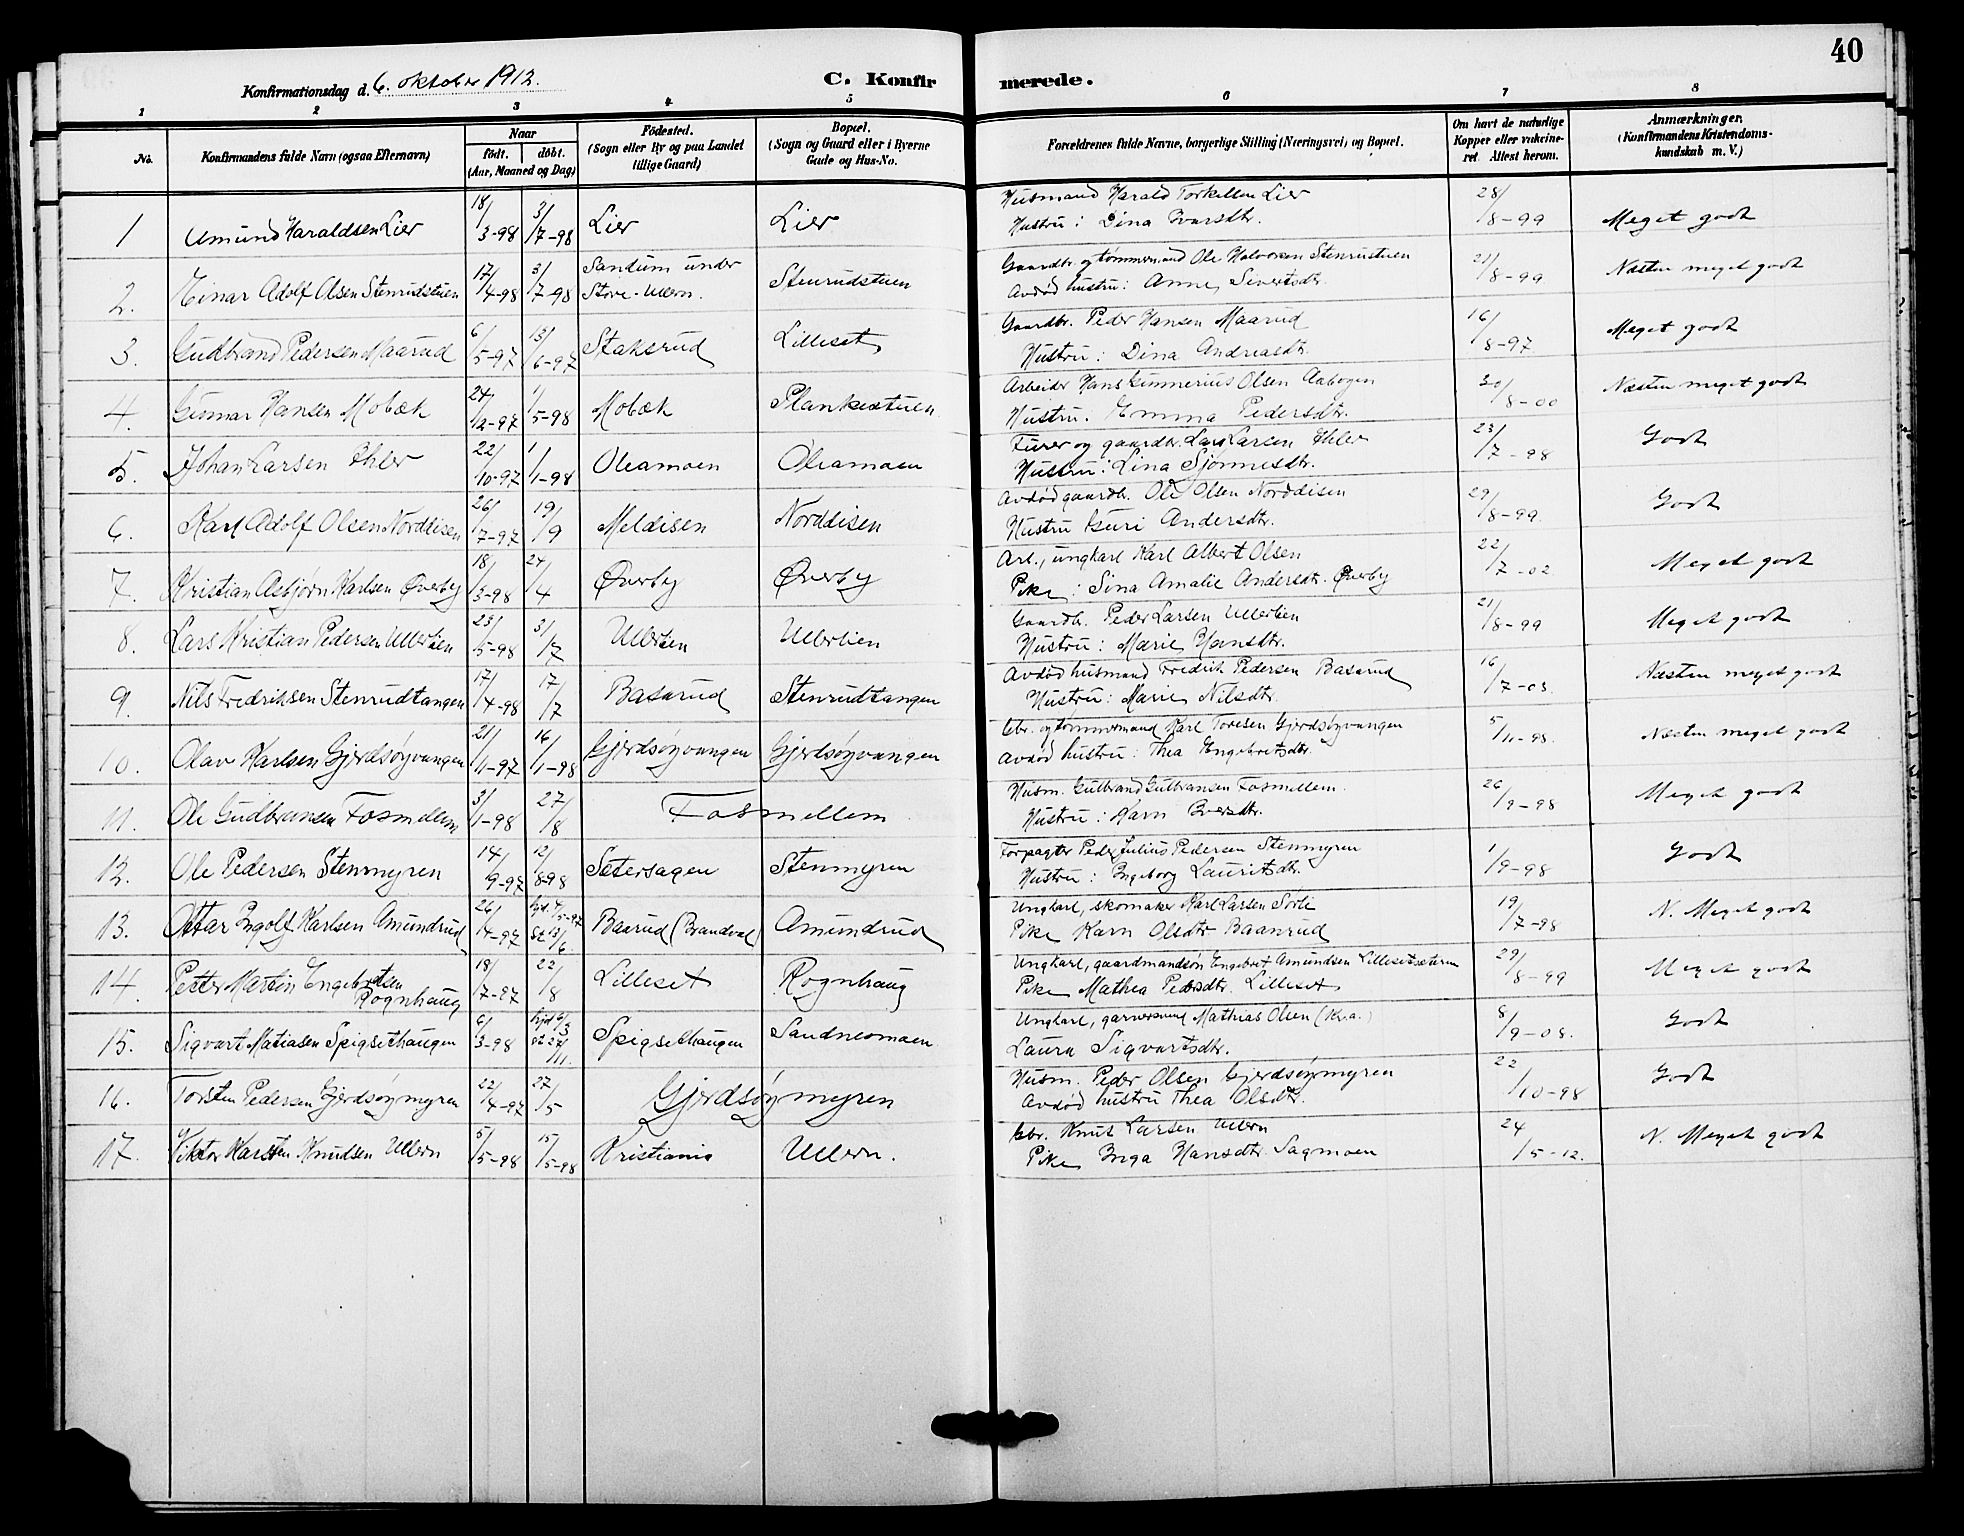 40
Konfirmationsdag d. 6. oktober 1912.
C. Konfirmerede.
1 2 3 4 5 6 7 8
No.
Konfirmandens fulde Navn (ogsaa Efternavn)
Naar
födt. döbt.
(Aar, Maaned og Dag)
Födested.
(Sogn eller By og paa Landet
tillige Gaard)
Bopæl.
(Sogn og Gaard eller i Byerne
Gade og Hus-No.
Forældrenes fulde Navne, borgerlige Stilling (Næringsvei) og Bopæl.
Om havt de naturlige
Kopper eller vakcine-
ret. Attest herom.
Anmærkninger.
(Konfirmandens Kristendoms-
kundskab m. V.)
1 Amund Haraldsen Lier 18/3-98 3/7-98 Lier Lier
Husmand Harald Torkellsen Lier 28/8-99 Meget godt
Hustru: Dina Ivarsdtr.
2. Einar Adolf Olsen Stenrudstuen 17/4-98 3/7-98 Sandum under Store-Ullern. Stenrudstuen
Gaardbr. og tømmermand Ole Halvorsen Stenrustuen 21/8-99 Næsten meget godt
Avdød hustru: Anne Sivertsdtr.
3. Gudbrand Pedersen Maarud 6/5-97 13/6-97 Staksrud Lilleset
Gaardbr. Peder Hansen Maarud 16/8-97 Meget godt
Hustru: Dina Andreasdtr.
4. Gunnar Hansen Mobæk 24/12-97 1/5-98 Mobæk Plankestuen
Arbeider Hans Gunnerius Olsen Aabogen 30/8-00 Næsten meget godt
Hustru. Emma Pedersdtr.
5. Johan Larsen Ihler 22/10-97 1/1-98 Oleamoen Oleamoen
Furer og gaardbr. Lars Larsen Ihler 23/7-98 Godt
Hustru: Lina Sjønnesdtr.
6. Karl Adolf Olsen Norddisen 26/7-97 19/9 Meldisen Norddisen
Avdød gaardbr. Ole Olsen Norddisen 29/8-99 Godt
Hustru Guri Andersdtr.
7. Kristian Asbjørn Karlsen Øverby 18/3-98 24/4 Øverby Øverby
Arb., ungkarl Karl Albert Olsen 22/7-02 Meget godt
Pike: Sina Amalie Andersdtr. Øverby
8. Lars Kristian Pedersen Ullerlien 23/5-98 3/7 Ullerlien Ullerlien
Gaardbr. Peder Larsen Ullerlien 21/8-99 Meget godt
Hustru: Marie Hansdtr.
9. Nils Fredriksen Stenrudtangen 17/4-98 17/7 Basarud Stenrudtangen
Avdød husmand Fredrik Pedersen Basarud 16/7-03. Næsten meget godt
Hustru: Marie Nilsdtr.
10. Olav Karlsen Gjerdsøyvangen 21/11-97 16/1-98 Gjerdsøyvangen Gjerdsøyvangen
Gbr. og tømmermand Karl Toresen Gjerdsøyvangen 5/11-98. Næsten meget godt
Avdød hustru: Thea Engebretsdtr.
11. Ole Gudbransen Fosmellem 3/1-98 27/8 Fosmellem
Husm. Gulbrand Gulbransen Fosmellem. 26/9-98 Meget godt
Hustru: Karn Iversdtr.
12. Ole Pedersen Stenmyren 14/9-97 12/8-98 Setersagen Stenmyren
Forpagter Peder Julius Pedersen Stenmyren 1/9-98 Godt
Hustru: Ingeborg Lauritsdtr.
13. Ottar Ingolf Karlsen Amundrud 26/4-97 hjd. 4/5-97 st 13/6 Basrud (Brandval) Amundrud
Ungkarl, skomaker Karl Larsen Sorli 19/7-98 N. Meget godt
Pike Karn Olsdtr Baanrud
14. Petter Martin Engebretsen Rognhaug 18/7-97 22/8 Lilleset Rognhaug
Ungkarl, gaardmandsøn Engebret Amundsen Lillesetsæteren 29/8-99 Meget godt
Pike Mathea Pedersdtr. Lilleset
15. Sigvart Matiasen Spigsethaugen 6/3-98 hjd 6/3 st 27/11. Spigsethaugen Sandnesmoen
Ungkarl, garversvend Mathias Olsen (Kr.a.) 8/9-08. Godt
Laura Sigvartsdtr.
16. Torsten Pedersen Gjerdsøymyren 22/4-97 27/5 Gjerdsøymyren
Husm. Peder Olsen Gjerdsøymyren 22/10-98 Godt
Avdød hustru Thea Olsdtr.
17. Viktor Karsten Knudsen Ullern 5/5-98 15/5-98 Kristiania Ullern.
Gbr. Knut Larsen Ullern 24/5-12. N. Meget godt
Pike Inga Hansdtr. Sagmoen